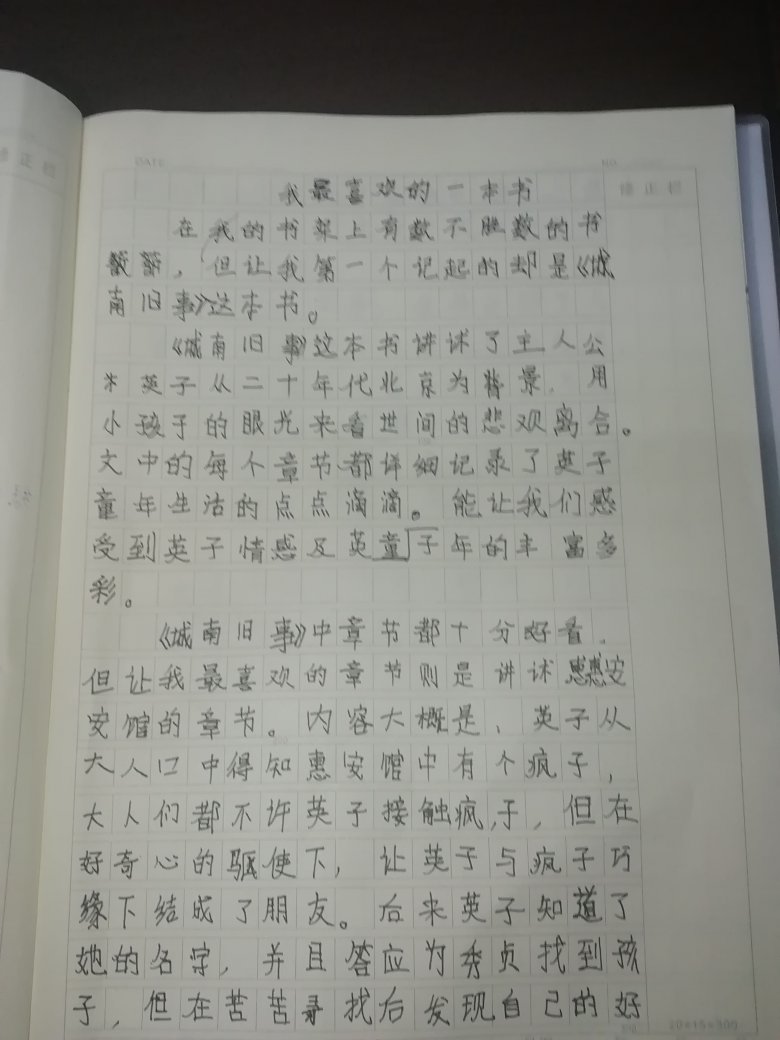 我最喜欢的一本书
在我的书架上有数不胜数的书
籍,但让我第一个记起的却是《城
南旧事》这本书。
《城南旧事》这本书讲述了主人公
林英子从二十年代北京为背景,用
小孩子的眼光来看世间的悲欢离合。
文中的每个章节都详细记录了英子
童年生活的点点滴滴。能让我们感
受到英子情感及英童子年的丰富多
彩。
《城南旧事》中章节都十分好看,
但让我最喜欢的章节则是讲述惠安
安馆的章节。内容大概是、英子从
大人口中得知惠安馆中有个疯子,
大人们都不许英子接触疯子,但在
好奇心的驱使下,让英子与疯子巧
缘下结成了朋友。后来英子知道了
她的名字,并且答应为秀贞找到孩
子,但在苦苦寻找后发现自己的好
20×15=300